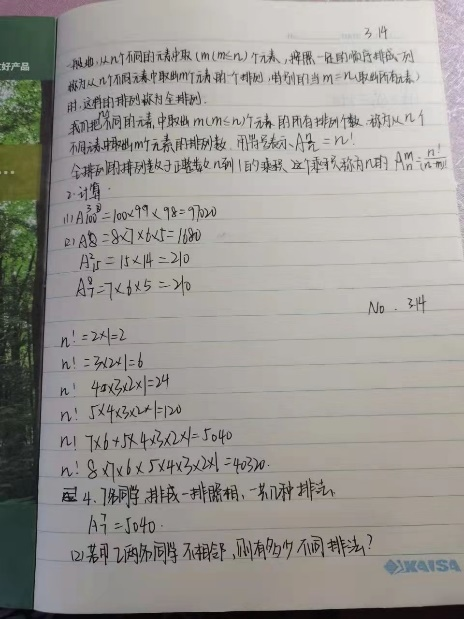 3.14
一般地,从n个不同的元素中取(m(m≤n)个元素,按照一定的顺序排成一列
称为从n个不同元素中取出m个元素的一个排列,特别的当m=n(取出所有元素)
时,这样的排列称为全排列.
我们把n不同的元素中取出m(m≤n)个元素的所有排列个数,称为从n个
不同元素中取出m个元素的排列数,用符号表示 =n!
全排列的排列数等于正整数n到1的乘积,这个乘积称为n的
2.计算.
(1) =100×99×98=97020
(2) =8×7×6×5=1680
A²₁₅=15×14=210
=7×6×5=210
No. 3.14
n!=2×1=2
n!=3×2×1=6
n! 4×3×2×1=24
n! 5×4×3×2×1=120
n! 7×6×5×4×3×2×1=5040
n! 8×7×6×5×4×3×2×1=40320.
4.7名同学,排成一排照相,一共几种排法.
=5040.
(2)若甲乙两名同学不相邻,则有多少不同排法?
KAISA
好产品